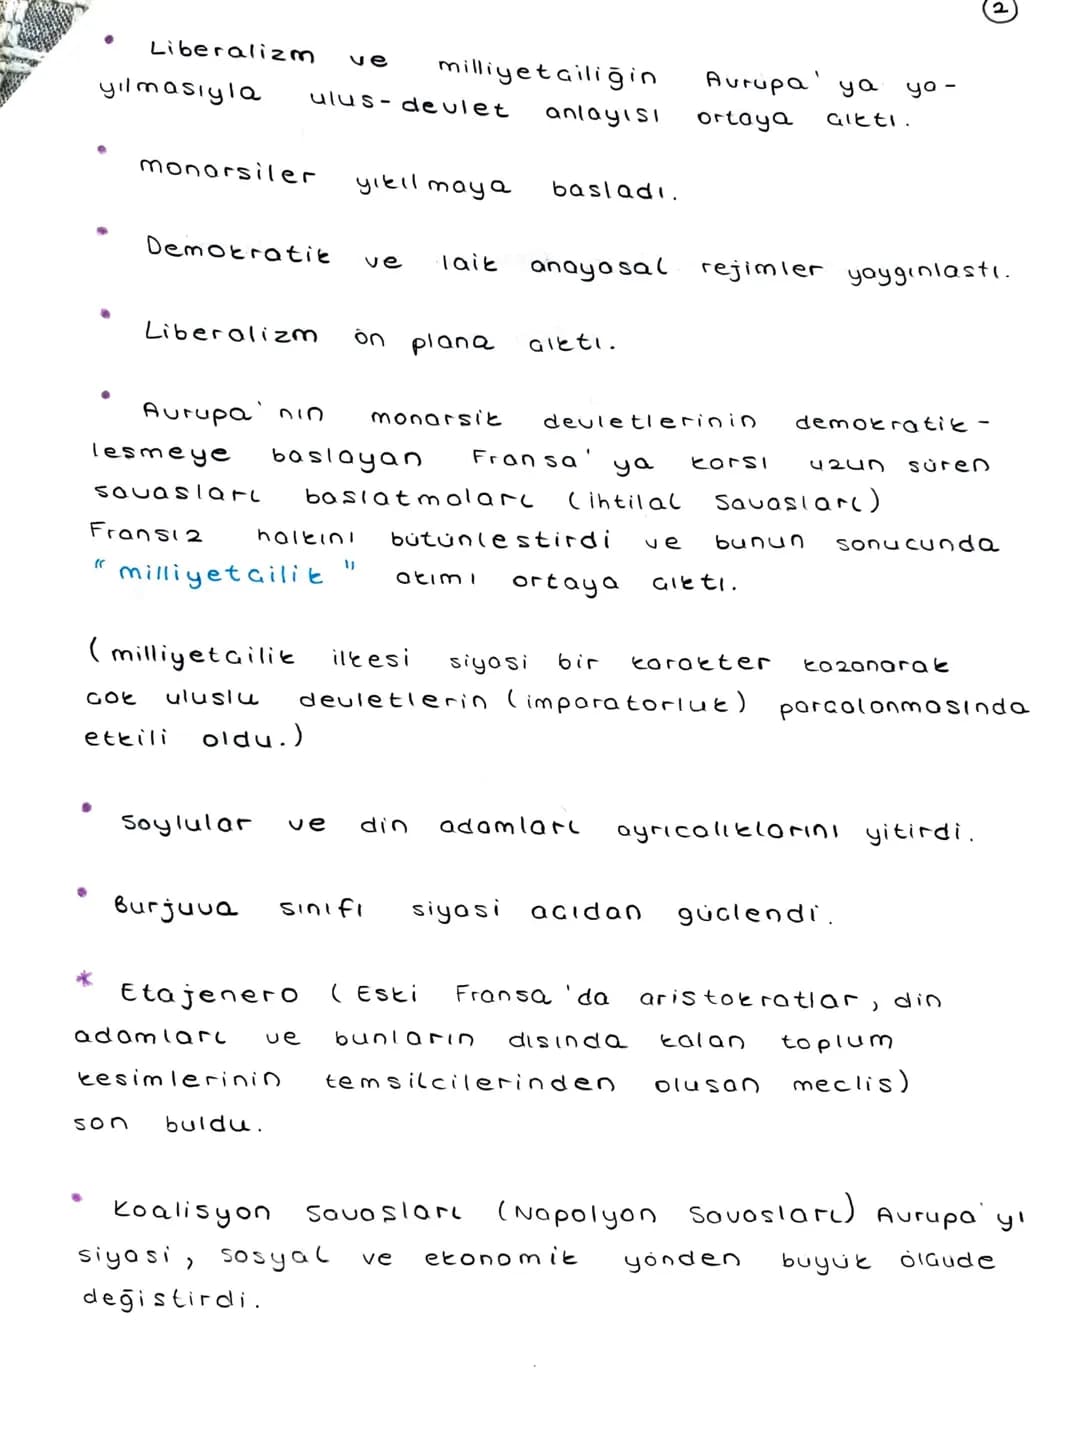 2
• Liberalizm ve milliyetçiliğin Avrupa'ya ya-
yılmasıyla ulus-devlet anlayışı ortaya çıktı.
• monarşiler yıkılmaya başladı.
• Demokratik ve laik anayasal rejimler yaygınlaştı.
• Liberalizm ön plana çıktı.
• Avrupa'nın monarşik devletlerinin demokratik-
leşmeye başlayan Fransa'ya karşı uzun süren
savaşları başlatmaları (ihtilal Savaşları)
Fransız halkını bütünleştirdi ve bunun sonucunda
"milliyetçilik" akımı ortaya çıktı.
(milliyetçilik ilkesi siyasi bir karakter kazanarak
çok uluslu devletlerin (imparatorluk) parçalanmasında
etkili oldu.)
• Soylular ve din adamları ayrıcalıklarını yitirdi.
• Burjuva sınıfı siyasi açıdan güçlendi.
* Etajenero (Eski Fransa'da aristokratlar, din
adamları ve bunların dışında kalan toplum
kesimlerinin temsilcilerinden oluşan meclis)
son buldu.
• Koalisyon Savaşları (Napolyon Savaşları) Avrupa'yı
siyasi, sosyal ve ekonomik yönden büyük ölçüde
değiştirdi.